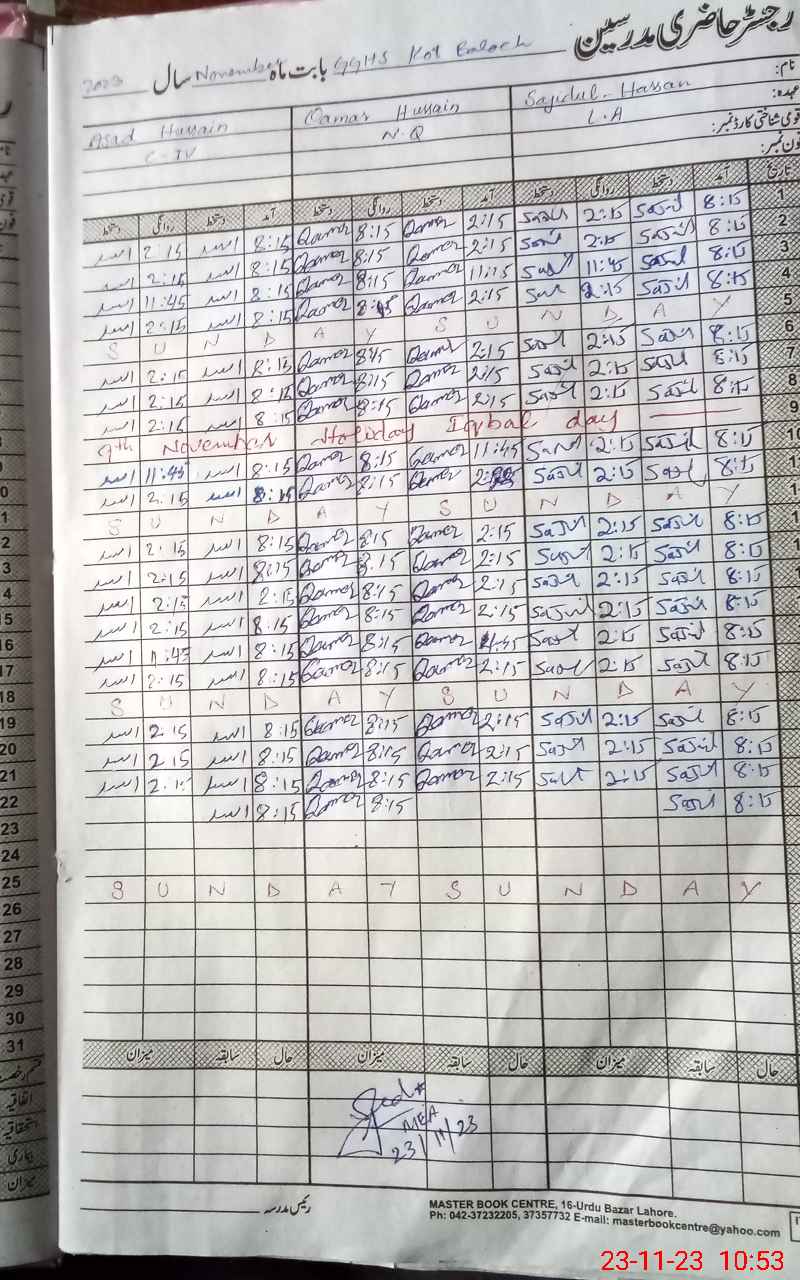 رجسٹر حاضری مدرسین
GGHS Kot Baloch بابت ماہ November سال 2023
نام: Sajidul-Hassan Qamar Hussain Asad Hussain
عہدہ: L.A N.Q C-IV
قومی شناختی کارڈ نمبر:
فون نمبر:
تاریخ آمد دستخط روانگی دستخط آمد دستخط روانگی دستخط آمد دستخط روانگی دستخط
1 8:15 Sajid 2:15 Sajid 2:15 Qamar 8:15 Qamar 8:15 اسد 2:15 اسد
2 8:15 Sajid 2:15 Sajid 2:15 Qamar 8:15 Qamar 8:15 اسد 2:15 اسد
3 8:15 Sajid 11:45 Sajid 11:15 Qamar 8:15 Qamar 8:15 اسد 11:45 اسد
4 8:15 Sajid 2:15 Sajid 2:15 Qamar 8:15 Qamar 8:15 اسد 2:15 اسد
5 S U N D A Y S U N D A Y
6 8:15 Sajid 2:15 Sajid 2:15 Qamar 8:15 Qamar 8:15 اسد 2:15 اسد
7 8:15 Sajid 2:15 Sajid 2:15 Qamar 8:15 Qamar 8:15 اسد 2:15 اسد
8 8:15 Sajid 2:15 Sajid 2:15 Qamar 8:15 Qamar 8:15 اسد 2:15 اسد
9 9th November Holiday Iqbal day
10 8:15 Sajid 2:15 Sajid 11:45 Qamar 8:15 Qamar 8:15 اسد 11:45 اسد
8:15 Sajid 2:15 Sajid Qamar 8:15 Qamar 8:15 اسد 2:15 اسد
S U N D A Y S U N D A Y
8:15 Sajid 2:15 Sajid 2:15 Qamar 8:15 Qamar 8:15 اسد 2:15 اسد
8:15 Sajid 2:15 Sajid 2:15 Qamar 8:15 Qamar 8:15 اسد 2:15 اسد
8:15 Sajid 2:15 Sajid 2:15 Qamar 8:15 Qamar 2:15 اسد 2:15 اسد
8:15 Sajid 2:15 Sajid 2:15 Qamar 8:15 Qamar 8:15 اسد 2:15 اسد
16 8:15 Sajid 2:15 Sajid Qamar 8:15 Qamar 8:15 اسد 11:45 اسد
17 8:15 Sajid 2:15 Sajid 2:15 Qamar 8:15 Qamar 8:15 اسد 2:15 اسد
18 S U N D A Y S U N D A Y
19 8:15 Sajid 2:15 Sajid 2:15 Qamar 8:15 Qamar 8:15 اسد 2:15 اسد
20 8:15 Sajid 2:15 Sajid 2:15 Qamar 8:15 Qamar 8:15 اسد 2:15 اسد
21 8:15 Sajid 2:15 Sajid 2:15 Qamar 8:15 Qamar 8:15 اسد 2:15 اسد
22 8:15 Sajid 8:15 Qamar 8:15 اسد
23
24
25 S U N D A Y S U N D A Y
26
27
28
29
30
31
حال سابقہ میزان حال سابقہ میزان حال سابقہ میزان
MEA
23/11/23
رئیس مدرسہ
MASTER BOOK CENTRE, 16-Urdu Bazar Lahore.
Ph: 042-37232205, 37357732 E-mail: masterbookcentre@yahoo.com
23-11-23 10:53